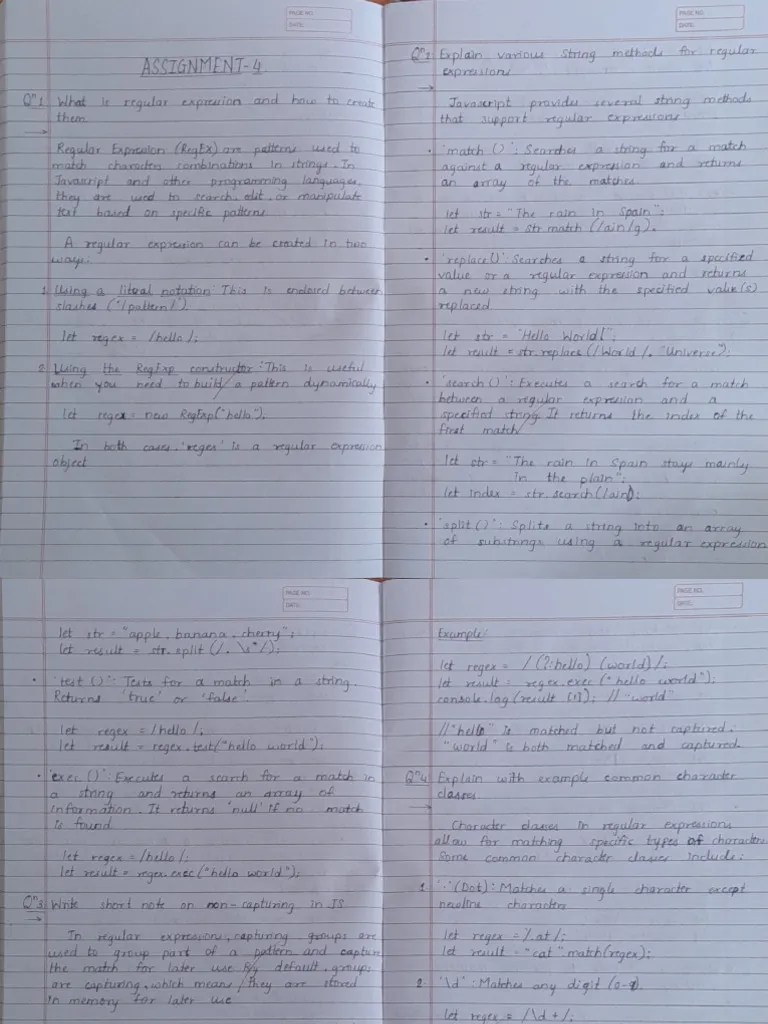 PAGE NO.
DATE:
ASSIGNMENT-4
Qⁿ1 What is regular expression and how to create
them.
→
Regular Expression (RegEx) are patterns used to
match characters combinations in strings. In
Javascript and other programming languages,
they are used to search, edit, or manipulate
text based on specific patterns.
A regular expression can be created in two
ways:
1. Using a literal notation: This is enclosed between
slashes ("/pattern/").
let regex = /hello/;
2. Using the RegExp constructor: This is useful
when you need to build a pattern dynamically
let regex = new RegExp("hello");
In both cases, 'regex' is a regular expression
object
PAGE NO.
DATE:
Qⁿ2 Explain various String methods for regular
expressions
→
Javascript provides several string methods
that support regular expressions.
• 'match()': Searches a string for a match
against a regular expression and returns
an array of the matches.
let str = "The rain in Spain";
let result = str.match(/ain/g).
• 'replace()': Searches a string for a specified
value or a regular expression and returns
a new string with the specified value(s)
replaced
let str = "Hello World!";
let result = str.replace(/World/, "Universe");
• 'search()': Executes a search for a match
between a regular expression and a
specified string. It returns the index of the
first match
let str = "The rain in Spain stays mainly
in the plain";
let index = str.search(/ain);
• 'split()': Splits a string into an array
of substrings using a regular expression
PAGE NO.
DATE:
let str = "apple, banana, cherry";
let result = str.split(/, \s*/);
• 'test()': Tests for a match in a string.
Returns 'true' or 'false'.
let regex = /hello/;
let result = regex.test("hello world");
• 'exec()': Executes a search for a match in
a string and returns an array of
information. It returns 'null' if no match
is found
let regex = /hello/;
let result = regex.exec("hello world");
Qⁿ3 Write short note on non-capturing in JS
→
In regular expressions, capturing groups are
used to group part of a pattern and capture
the match for later use. By default, groups
are capturing, which means they are stored
in memory for later use
PAGE NO.
DATE:
Example:
let regex = /(?:hello) (world)/;
let result = regex.exec("hello world");
console.log(result [1]); // "world"
// "hello" is matched but not captured.
"world" is both matched and captured.
Qⁿ4 Explain with example common character
classes.
→
Character classes in regular expressions
allow for matching specific types of characters
Some common character classes include:
1. '.' (Dot): Matches a single character except
newline characters
let regex = /.at/;
let result = "cat".match(regex);
2. '\d': Matches any digit (0-9).
let regex = /\d+/;